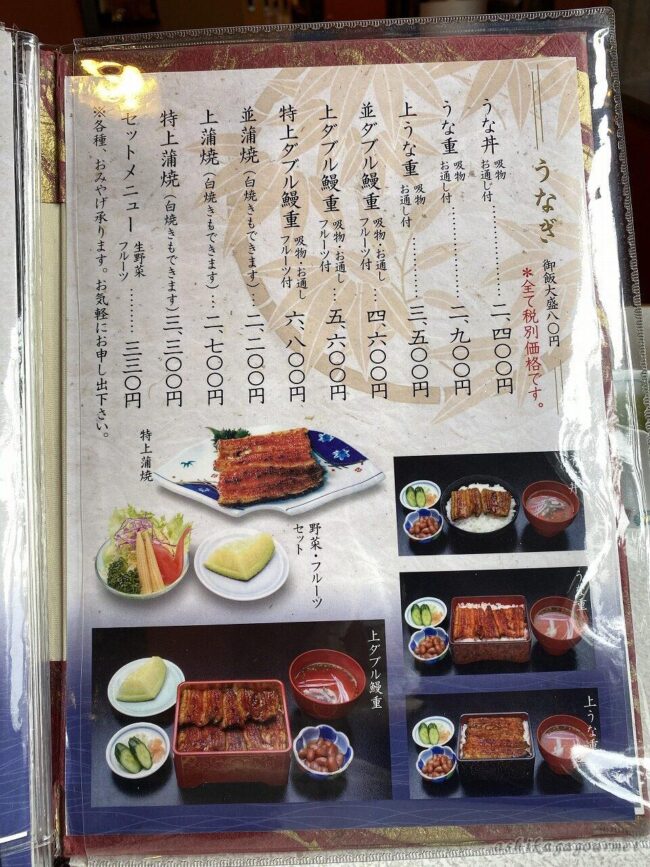 うなぎ
御飯大盛八〇円
＊全て税別価格です。
うな丼 吸物 お通し付………二、四〇〇円
うな重 吸物 お通し付…………二、九〇〇円
上うな重 吸物 お通し付…………三、五〇〇円
並ダブル鰻重 吸物・お通し フルーツ付…四、六〇〇円
上ダブル鰻重 吸物・お通し フルーツ付…五、六〇〇円
特上ダブル鰻重 吸物・お通し フルーツ付 六、八〇〇円
並蒲焼（白焼きもできます）…二、二〇〇円
上蒲焼（白焼きもできます）…二、七〇〇円
特上蒲焼（白焼きもできます）三、三〇〇円
セットメニュー 生野菜 フルーツ………三三〇円
※各種、おみやげ承ります。お気軽にお申し出下さい。
特上蒲焼
野菜・フルーツ
セット
上ダブル鰻重
上うな重
ashikagagourmet